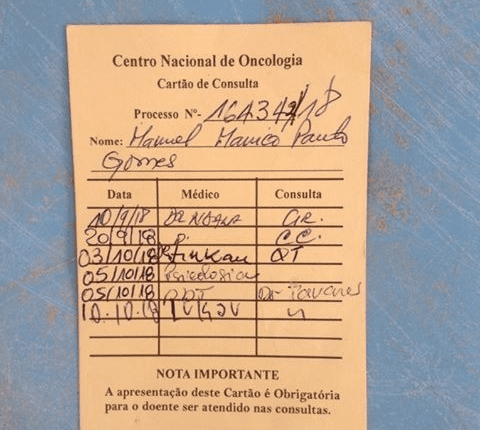 Centro Nacional de Oncologia
Cartão de Consulta
Processo Nº- 164342/18
Nome: Manuel Manico Paulo
Gomes
Data Médico Consulta
10/9/18 DR NDALA GR.
20/9/18 C.C.
03/10/18 QT
05/10/18 Psicologia
05/10/18 Dr Tavares
10.10.18
NOTA IMPORTANTE
A apresentação deste Cartão é Obrigatória
para o doente ser atendido nas consultas.